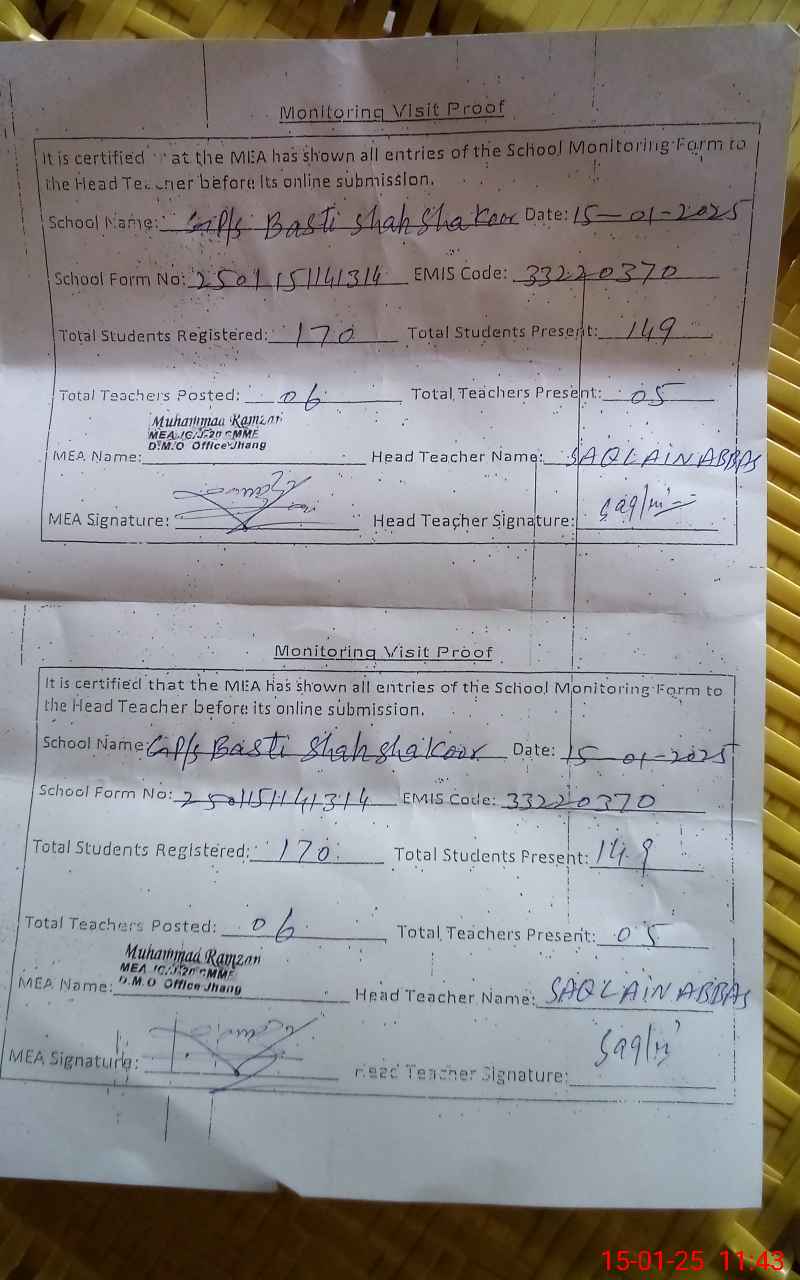 Monitoring Visit Proof
It is certified that the MEA has shown all entries of the School Monitoring Form to
the Head Teacher before its online submission.
School Name: G.P/s Basti Shah Shakoor Date: 15-01-2025
School Form No: 2501151141314 EMIS Code: 33220370
Total Students Registered: 170 Total Students Present: 149
Total Teachers Posted: 06 Total Teachers Present: 05
Muhammad Ramzan
D.M.O Office Jhang
MEA Name: Head Teacher Name: SAQLAIN ABBAS
MEA Signature: Head Teacher Signature: Saqlin
Monitoring Visit Proof
It is certified that the MEA has shown all entries of the School Monitoring Form to
the Head Teacher before its online submission.
School Name: G.P/s Basti Shah Shakoor Date: 15-01-2025
School Form No: 2501151141314 EMIS Code: 33220370
Total Students Registered: 170 Total Students Present: 149
Total Teachers Posted: 06 Total Teachers Present: 05
Muhammad Ramzan
D.M.O Office Jhang
MEA Name: Head Teacher Name: SAQLAIN ABBAS
MEA Signature: Head Teacher Signature: Saqlin
15-01-25 11:43